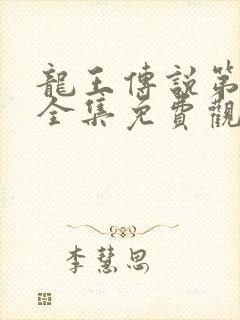 龍王傳說第
全集免費觀
李慧恩